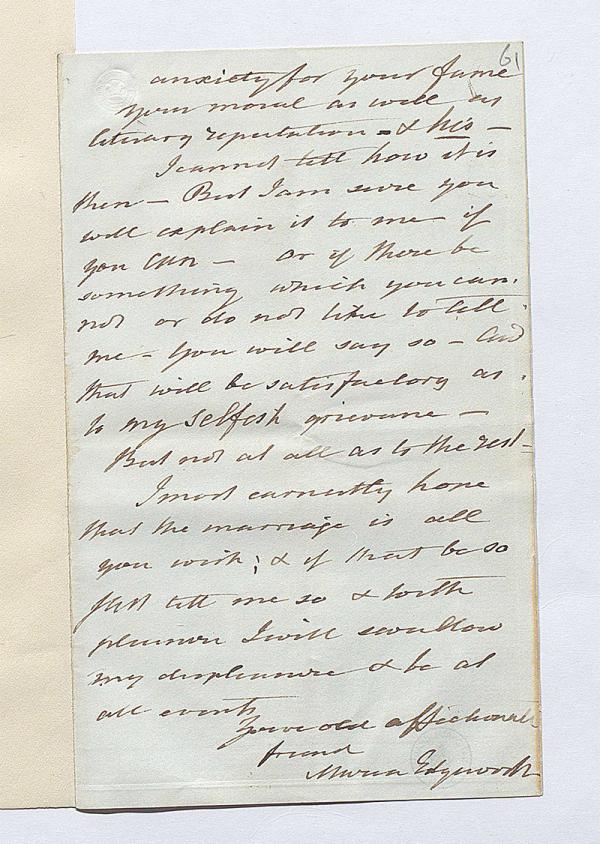 61
anxiety for your fame
your moral as well as
literary reputation - & his -
I cannot tell how it is
then - But I am sure you
will explain it to me if
you can - or if there be
something which you can
not or do not like to tell
me - you will say so - And
that will be satisfactory as
to my selfish grievance -
But not at all as to the rest -
I most earnestly hope
that the marriage is all
you wish; & if that be so
just tell me so & with
pleasure I will swallow
my displeasure & be at
all events
Your old affectionate
friend
Maria Edgeworth